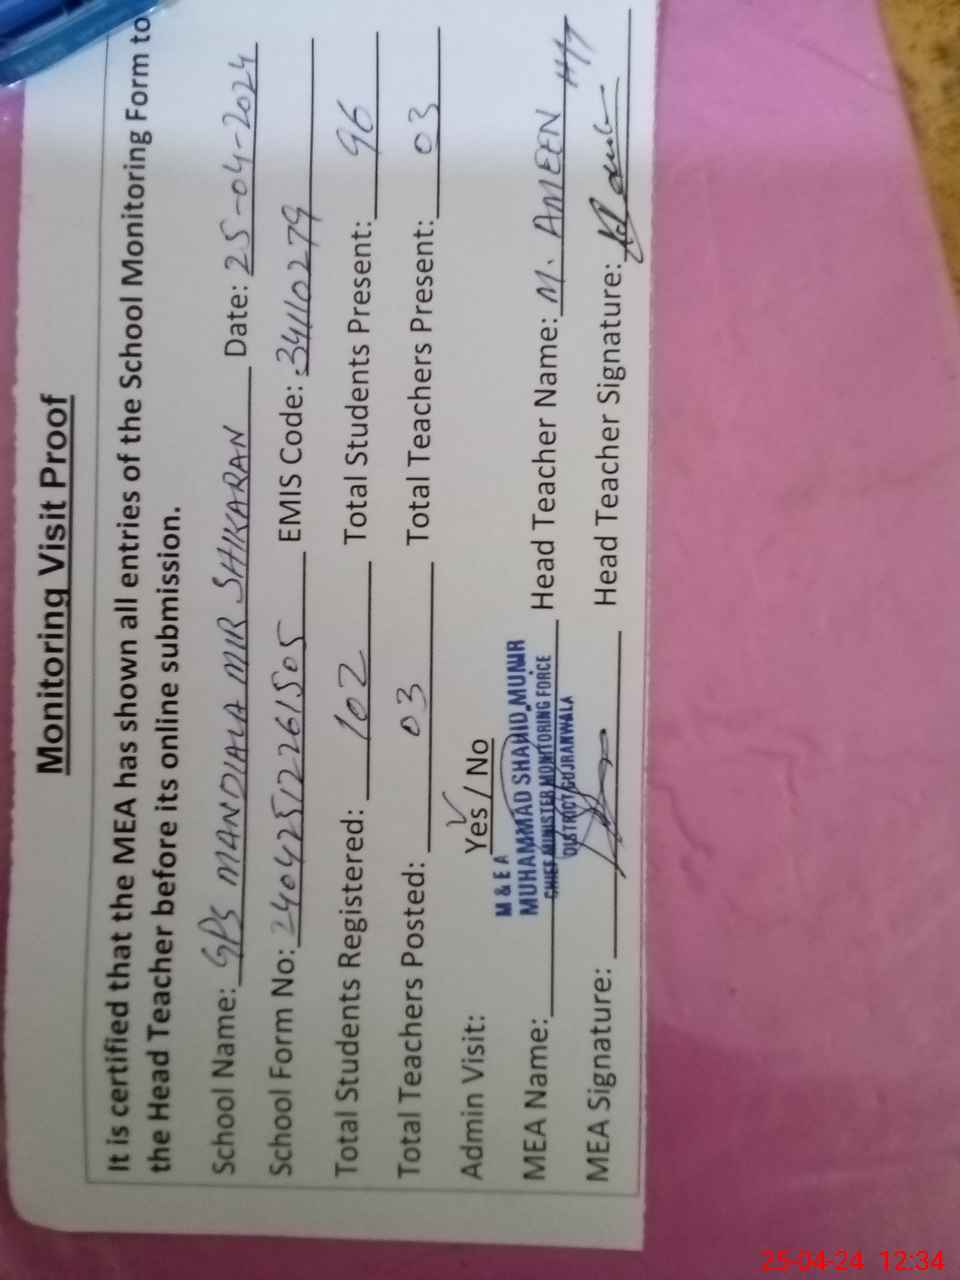 Monitoring Visit Proof
It is certified that the MEA has shown all entries of the School Monitoring Form to
the Head Teacher before its online submission.
School Name: GPS MANDIALA MIR SHIKARAN Date: 25-04-2024
School Form No: 240425122261505 EMIS Code: 34110279
Total Students Registered: 102 Total Students Present: 96
Total Teachers Posted: 03 Total Teachers Present: 03
Admin Visit: Yes / No
M & E A
MUHAMMAD SHAHID MUNIR
CHIEF MINISTER MONITORING FORCE
DISTRICT GUJRANWALA
MEA Name: Head Teacher Name: M. AMEEN H/T
MEA Signature: Head Teacher Signature:
25-04-24 12:34